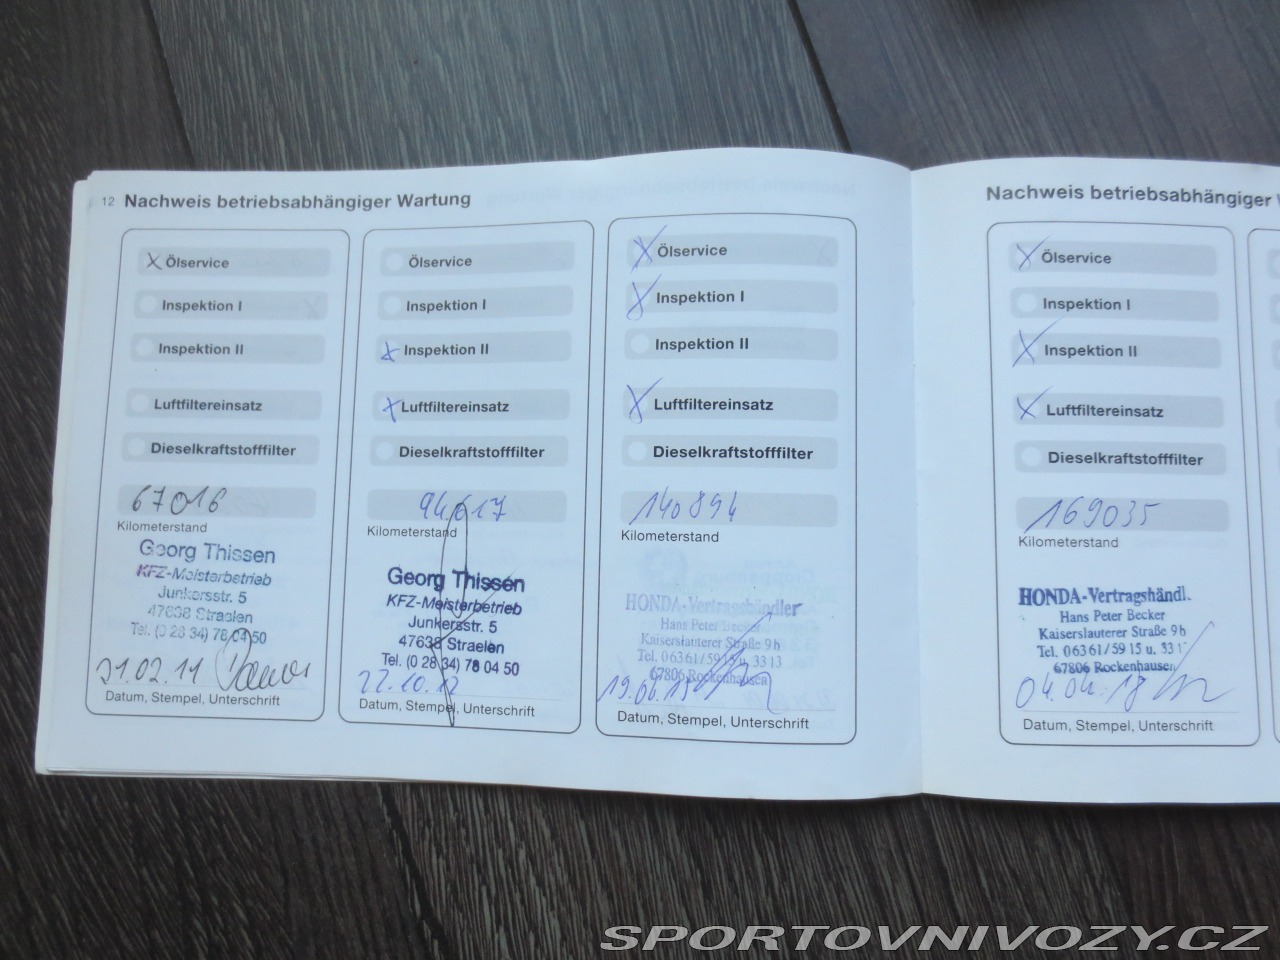 12 Nachweis betriebsabhängiger Wartung
X Ölservice
Inspektion I
Inspektion II
Luftfiltereinsatz
Dieselkraftstofffilter
67016
Kilometerstand
Georg Thissen
KFZ-Meisterbetrieb
Junkersstr. 5
47638 Straelen
Tel. (0 28 34) 78 04 50
Datum, Stempel, Unterschrift
Ölservice
Inspektion I
X Inspektion II
X Luftfiltereinsatz
Dieselkraftstofffilter
94.617
Kilometerstand
Georg Thissen
KFZ-Meisterbetrieb
Junkersstr. 5
47638 Straelen
Tel. (0 28 34) 78 04 50
22.10.12
Datum, Stempel, Unterschrift
X Ölservice
X Inspektion I
Inspektion II
X Luftfiltereinsatz
Dieselkraftstofffilter
140894
Kilometerstand
HONDA-Vertragshändler
Hans Peter Becker
Kaiserslauterer Straße 9b
Tel. 06361/5915 u. 3313
67806 Rockenhausen
Datum, Stempel, Unterschrift
Nachweis betriebsabhängiger
X Ölservice
Inspektion I
X Inspektion II
X Luftfiltereinsatz
Dieselkraftstofffilter
169035
Kilometerstand
HONDA-Vertragshändl.
Hans Peter Becker
Kaiserslauterer Straße 9b
Tel. 06361/5915 u. 331
67806 Rockenhausen
04.04.18
Datum, Stempel, Unterschrift
SPORTOVNIVOZY.CZ